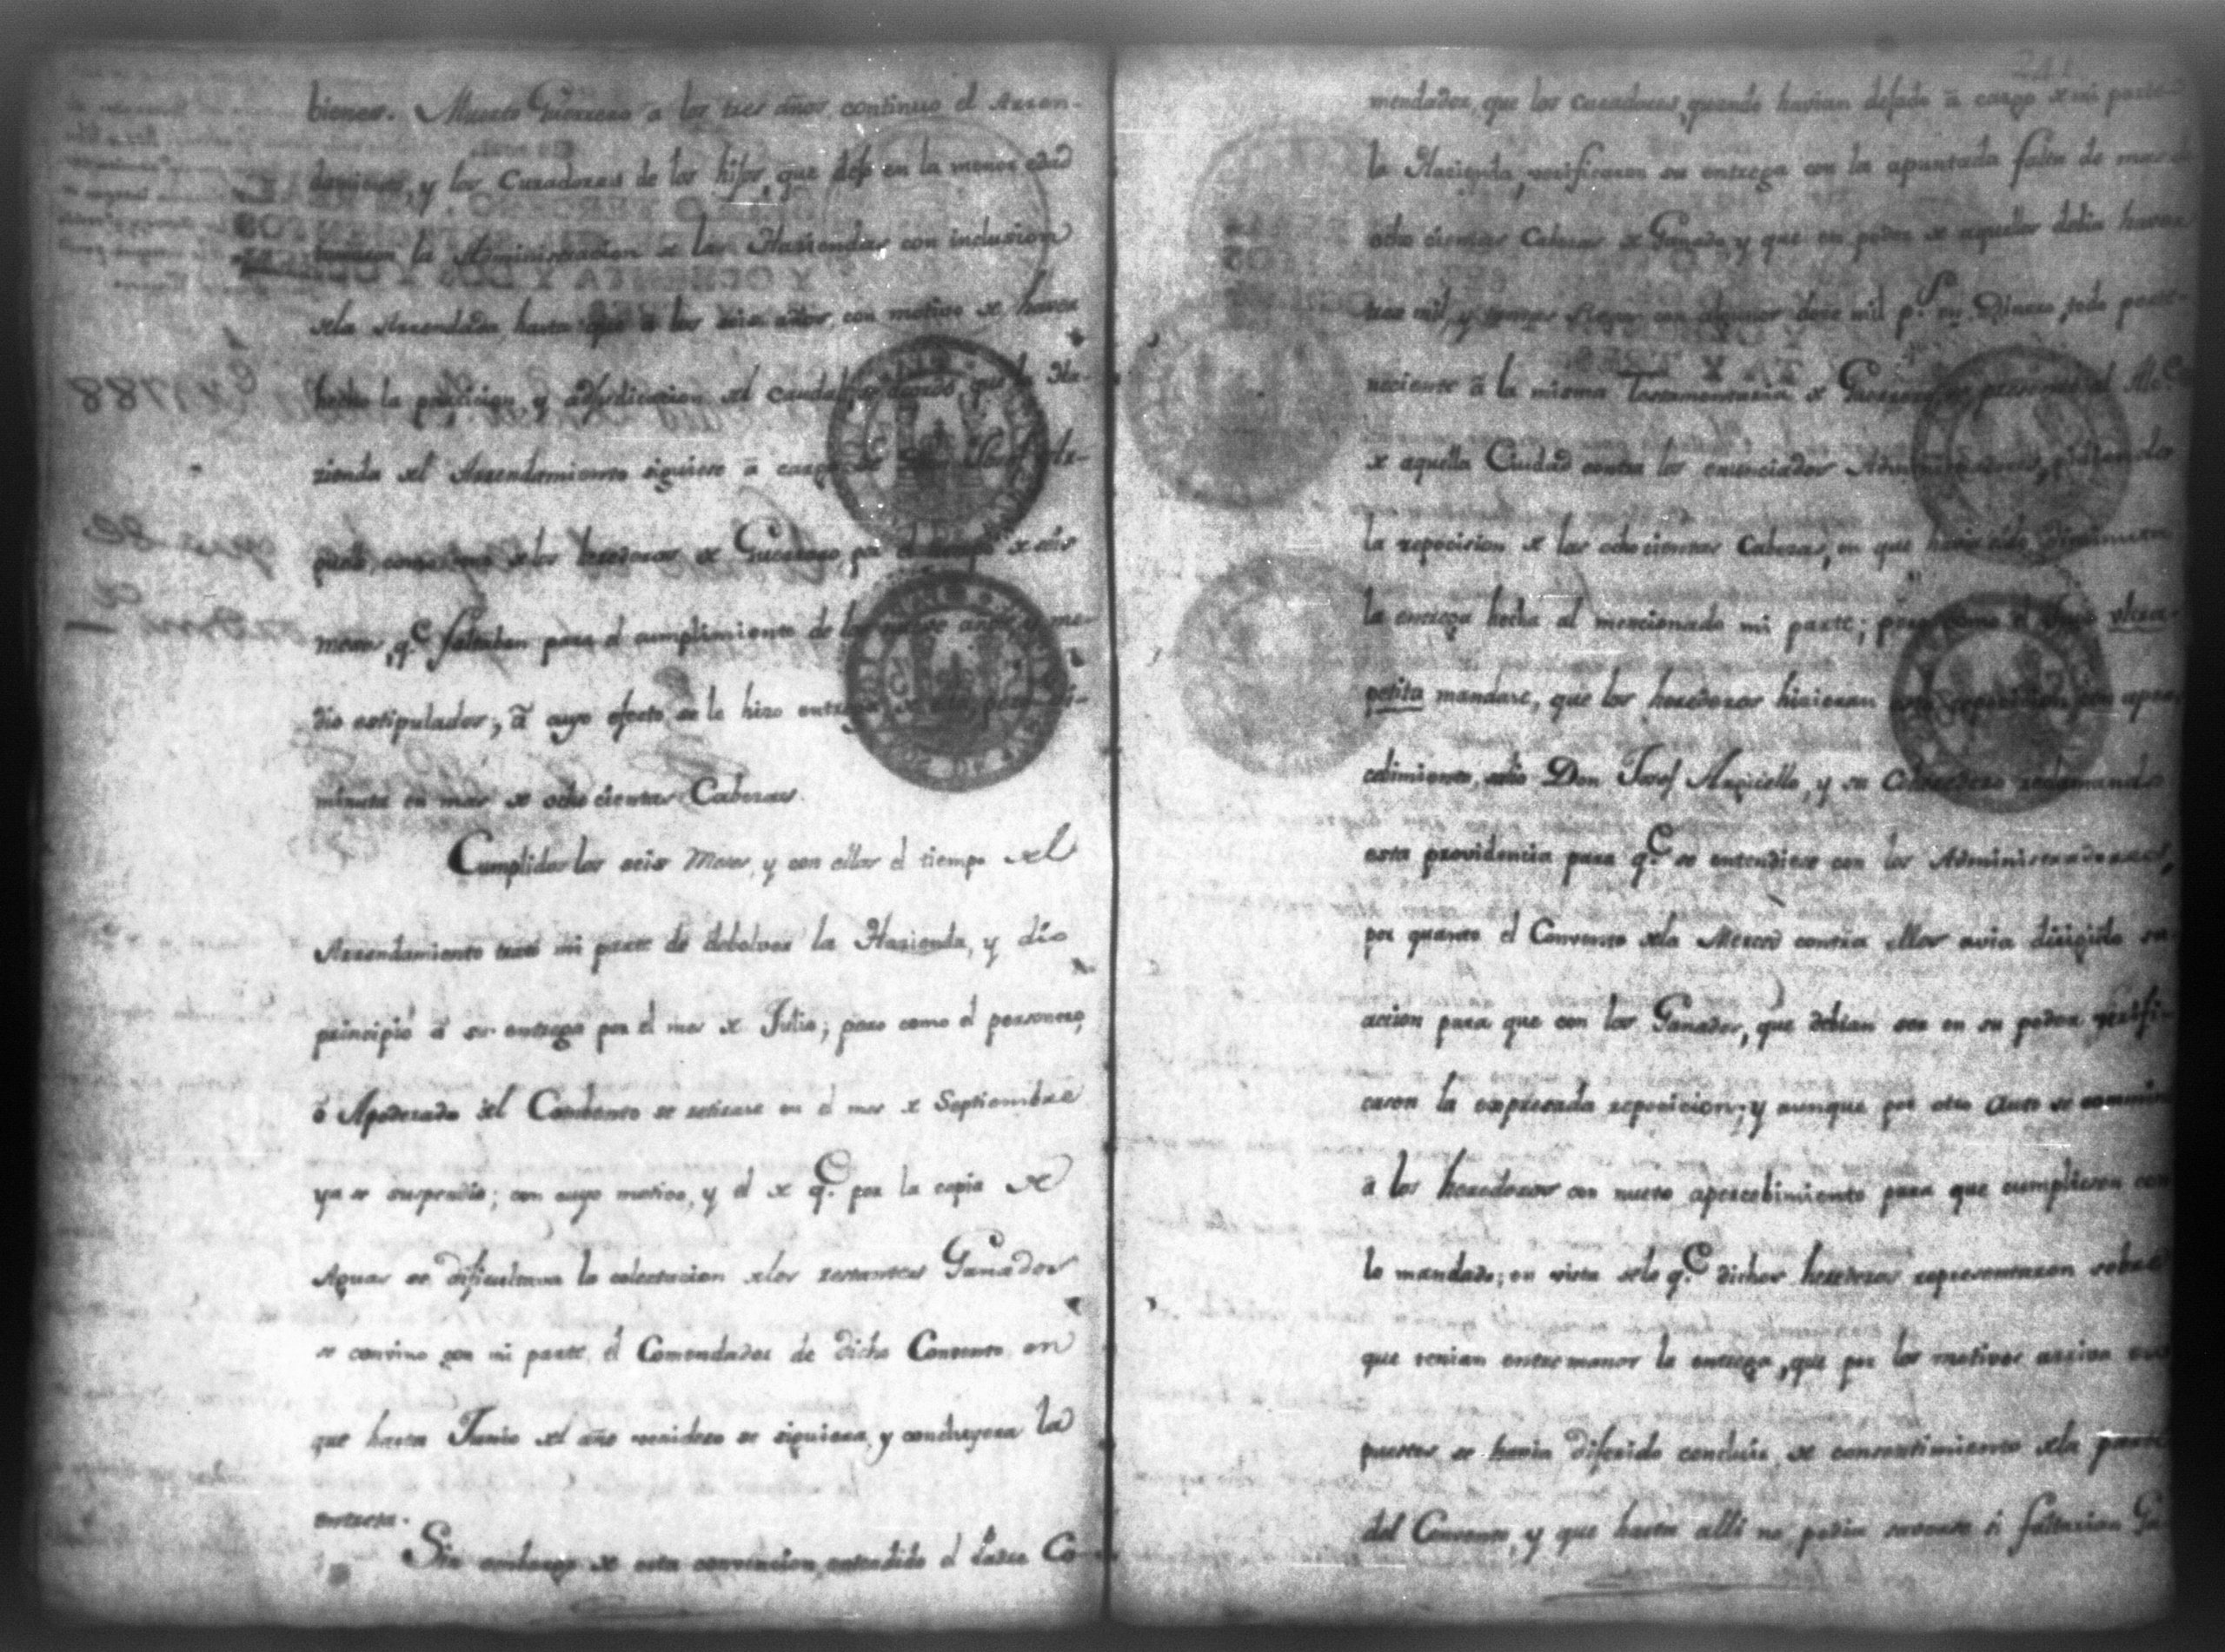 bienes. Muerto Guerrero a los tres años continuo el Arren-
damiento, y los Curadores de los hijos, que dejo en la menor edad
tuvieron la Administracion de las Haziendas con inclusion
dela Arrendada, hasta que a los seis años, con motivo de haver
hecho la particion, y adjudicacion del caudal, que la Ha-
zienda del Arrendamiento siguiese â cargo de
parte, como uno de los herederos de Guerrero por el tiempo de seis
meses, q.e faltaban para el cumplimiento de los años y me-
dio estipulados; â cuyo efecto se le hizo
minuta en mas de ocho cientas Cabezas.
Cumplidos los seis Meses, y con ellos el tiempo del
Arrendamiento trató mi parte de debolver la Hazienda, y dio
principio â su entrega por el mes de Julio; pero como el personero,
ô Apoderado del Combento se retirase en el mes de Septiembre
ya se suspendio; con cuyo motivo, y el de q.e por la copia de
Aguas se dificultava la colectacion delos restantes Ganados
se convino con mi parte el Comendador de dicho Convento en
que hasta Junio del año venidero se siguiera, y concluyera la
entrega.
Sin embargo de esta convencion, entendido el Padre Co-
mendador, que los curadores, quando havian dejado â cargo de mi parte
la Hazienda, verificaron su entrega con la apuntada falta de mas de
ocho cientas Cabezas de Ganado, y que en poder de aquellos debia haver
tres mil, y tantas Reses con algunos doze mil p.s en Dinero, todo perte-
neciente â la misma Testamentaria de Guerrero, se presentó al Alc.e
de aquella Ciudad contra los enunciados Administradores, pidiendo
la reposicion de las ocho cientas Cabezas, en que havia sido diminuta
la entrega hecha al mencionado mi parte; pero como el Juez ultra-
petita mandase, que los herederos hicieran esta reposicion con aper-
cebimiento, salio Don Josef Auqicello, y su Coheredero reclamando
esta providencia para q.e se entendiese con los Administradores,
por quanto el Convento dela Merced contra ellos avia dirigido su
accion para que con los Ganados, que debian ser en su poder verifi-
casen la expresada reposicion; y aunque por otro Auto se conmino
a los herederos con nuevo apercebimiento para que cumpliesen con
lo mandado; en vista delo q.e dichos herederos representaron sobre
que tenian entre manos la entrega, que por los motivos arriva ex-
puestos se havia diferido concluir de consentimiento dela parte
del Convento, y que hasta alli no podia saverse si faltarian Ga-